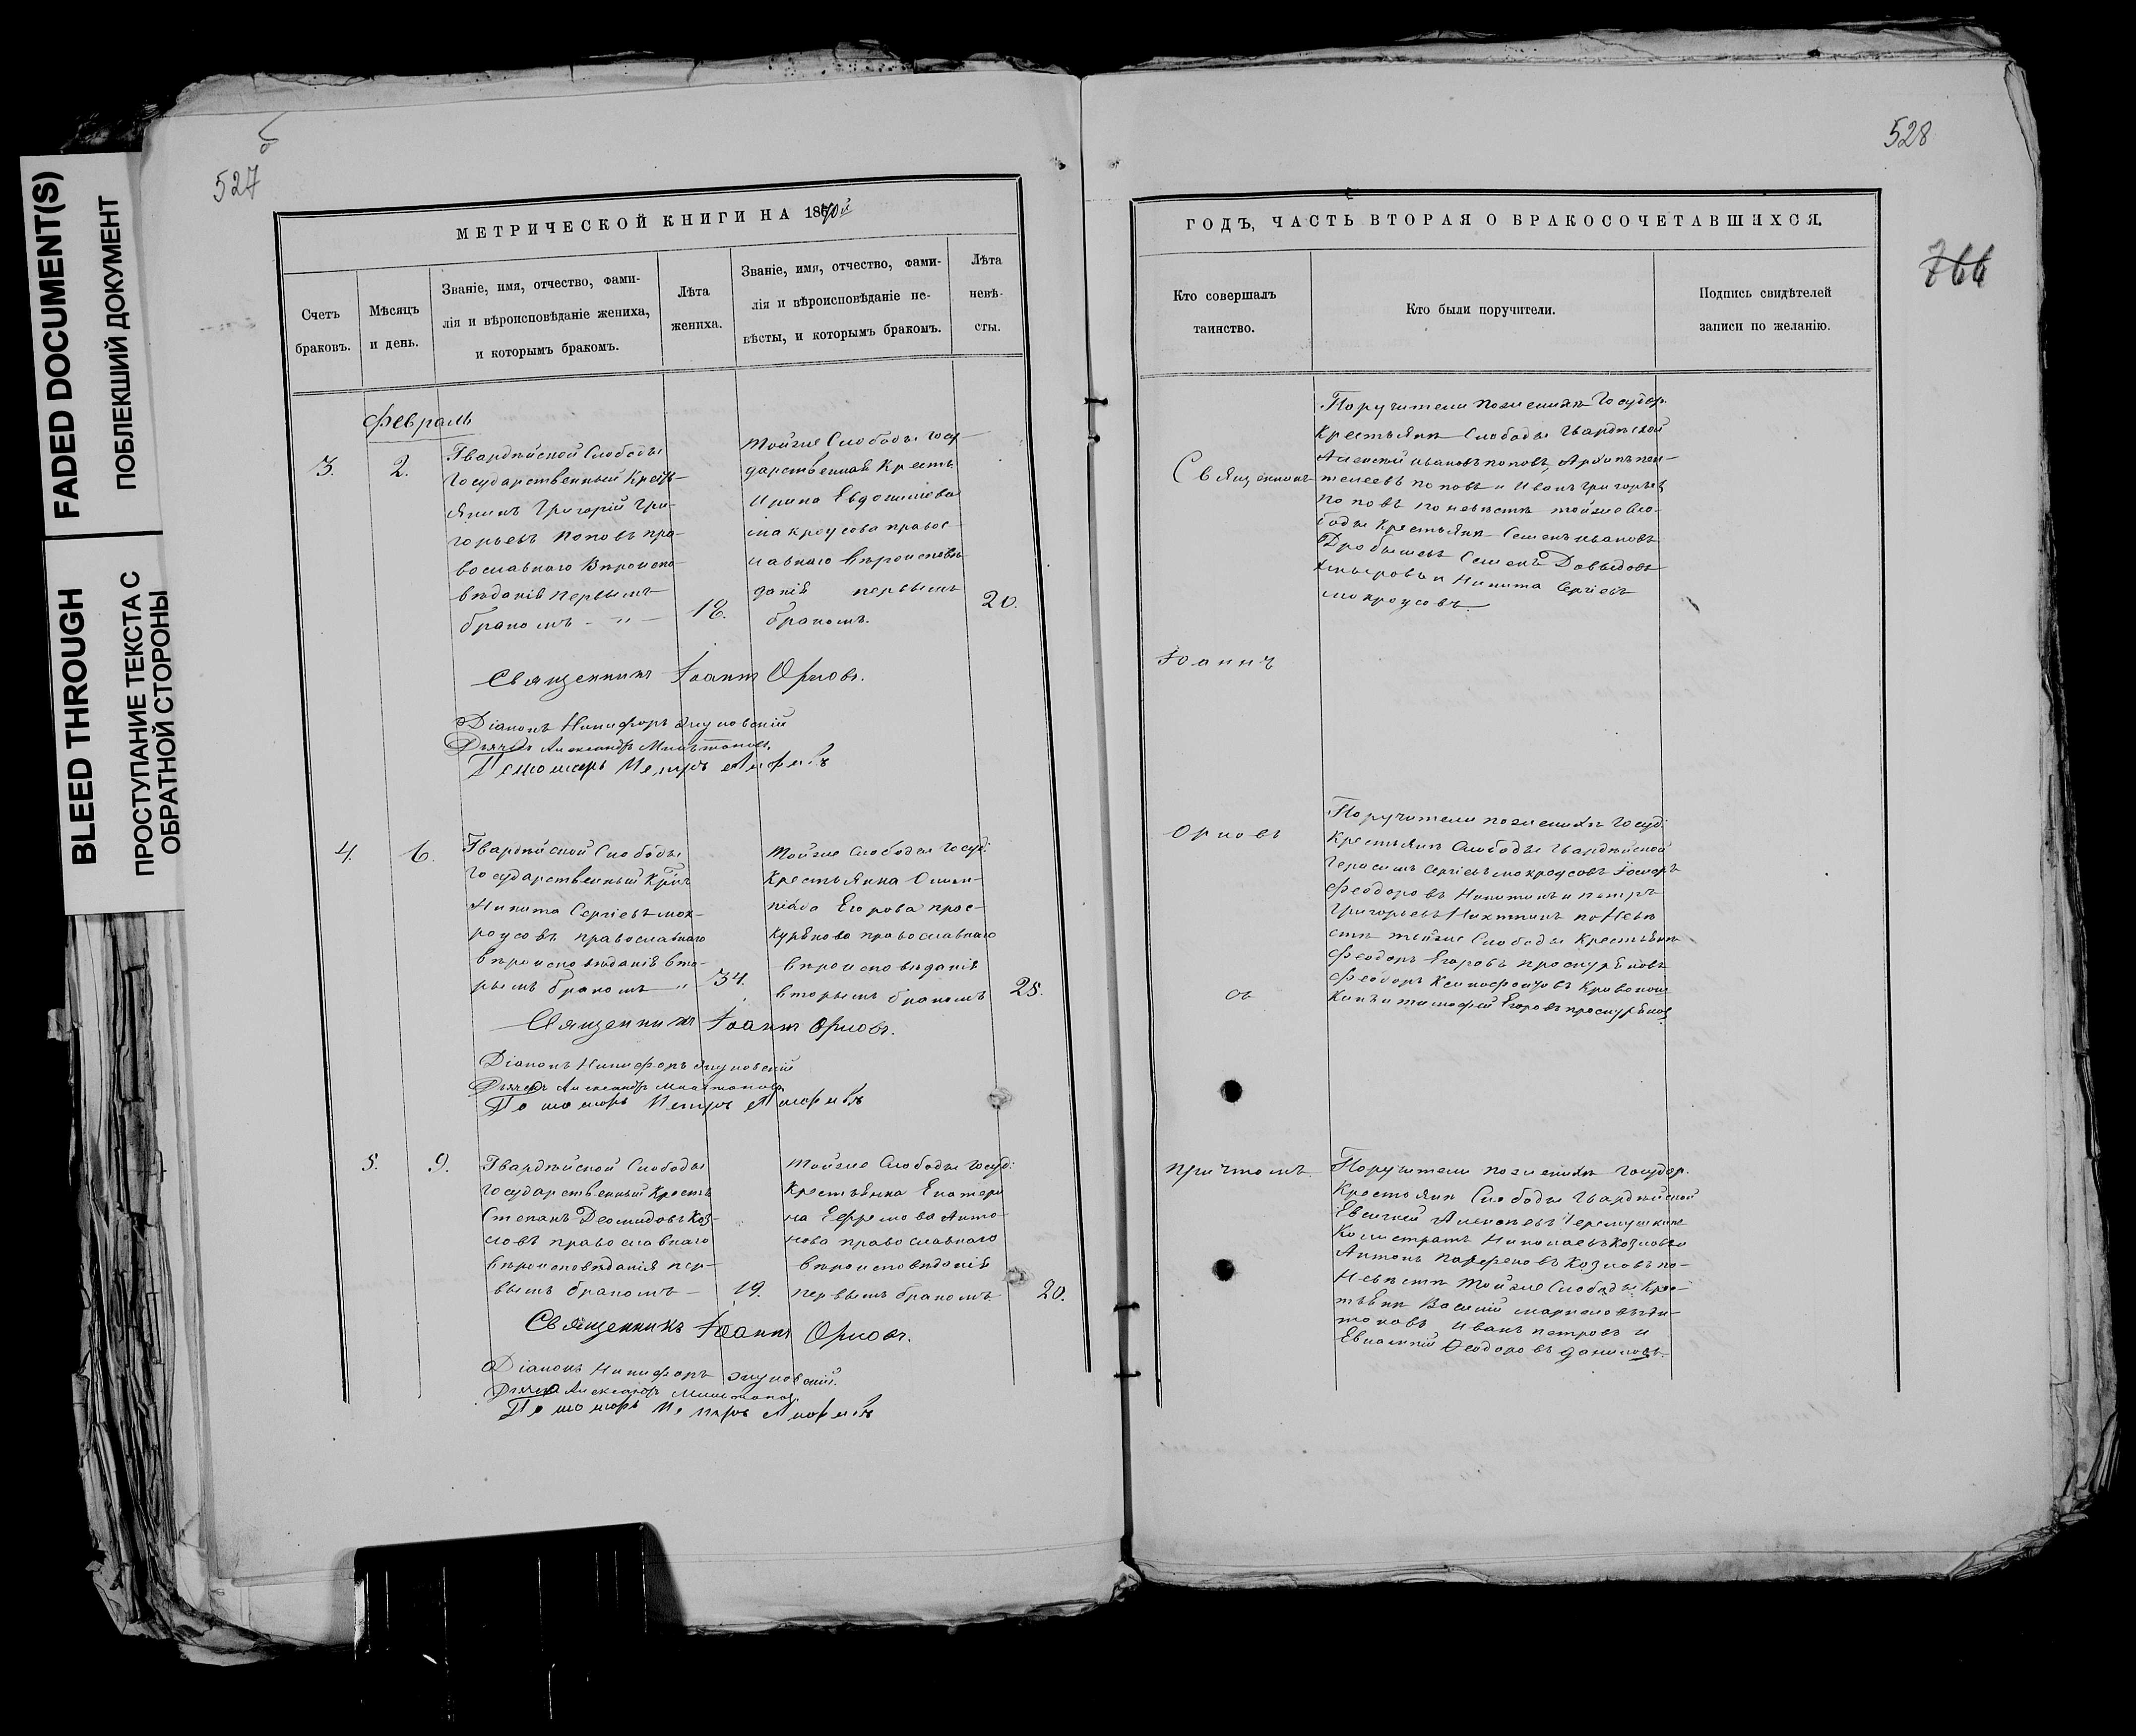 FADED DOCUMENT(S)
ПОБЛЕКШИЙ ДОКУМЕНТ
BLEED THROUGH
ПРОСТУПАНИЕ ТЕКСТА С
ОБРАТНОЙ СТОРОНЫ
527
МЕТРИЧЕСКОЙ КНИГИ НА 1870й
Счетъ
браковъ.
Мѣсяцъ
и день.
Званіе, имя, отчество, фами-
лія и вѣроисповѣданіе жениха,
и которымъ бракомъ.
Лѣта
жениха.
Званіе, имя, отчество, фами-
лія и вѣроисповѣданіе не-
вѣсты, и которымъ бракомъ.
Лѣта
невѣ-
сты.
Февраль
3.
2.
Гвардѣйской Слободы
Государственный Кресть-
янинъ Григорій Гри-
горьевъ Поповъ пра-
вославнаго Вѣроиспо-
вѣданія первымъ
бракомъ - „ -
18.
тойже Слободы Госу-
дарственная Кресть
Ирина Евдокимова
мокроусова правос-
лавнаго вѣроисповѣ-
данія первымъ
бракомъ.
20.
Священникъ Іоаннъ Орловъ.
Діаконъ Никифоръ
Дьячекъ Александръ
Пономарь Петръ
4.
6.
Гвардѣйской Слободы
Государственный Крес
Никита Сергіевъ мок-
роусовъ православнаго
вѣроисповѣданія вто-
рымъ бракомъ „
34.
тойже Слободы Госуд:
Крестьянка Олим-
піада Егорова прос-
курякова православнаго
вѣроисповѣданія
вторымъ бракомъ
28.
Священникъ Іоаннъ Орловъ.
Діаконъ Никифоръ
Дьячекъ Александръ
Пономарь Петръ
5.
9.
Гвардѣйской Слободы
Государственный Кресть
Степанъ Деомидовъ Коз-
ловъ православнаго
вѣроисповѣданія пер-
вымъ бракомъ -
19.
тойже Слободы Госуд:
Крестьянка Екатери
на Ефремова Анто-
нова православнаго
вѣроисповѣданія
первымъ бракомъ
20.
Священникъ Іоаннъ Орловъ.
Діаконъ Никифоръ
Дьячекъ Александръ
Пономарь Петръ
528
766
ГОДЪ, ЧАСТЬ ВТОРАЯ О БРАКОСОЧЕТАВШИХСЯ.
Кто совершалъ
таинство.
Кто были поручители.
Подпись свидѣтелей
записи по желанію.
Священникъ
Іоаннъ
Орловъ
съ
причтомъ
Поручители по женихѣ Государ.
Крестьяне Слободы Гвардѣской
Алексѣй ивановъ поповъ, Архипъ пан-
телеевъ поповъ и Иванъ Григорьев
Поповъ по невѣстѣ тойже Сло-
боды Крестьяне Семенъ ивановъ
Дробышевъ Семенъ Давыдовъ
и Никита Сергіевъ
мокроусовъ
Поручители по женихѣ Госуд:
Крестьяне Слободы Гвардѣйской
Герасимъ Сергіевъ мокроусовъ
Феодоровъ Никитинъ и петръ
Григорьевъ Никитинъ по Невѣ
стѣ тойже Слободы Крестьяне
Феодоръ Егоровъ проскуряковъ
Феодоръ Ксенофонтовъ
и тимофѣй Егоровъ проскуряков
Поручители по женихѣ Государ.
Крестьяне Слободы Гвардѣйской
Евсигней Алексѣевъ Черемушкин
Калистратъ Николаевъ Козловъ и
Антонъ парфеновъ Козловъ по-
Невѣстѣ тойже Слободы Крес-
тьяне Василій ан-
тоновъ Иванъ петровъ и
Евлампій Феодоровъ даниловъ